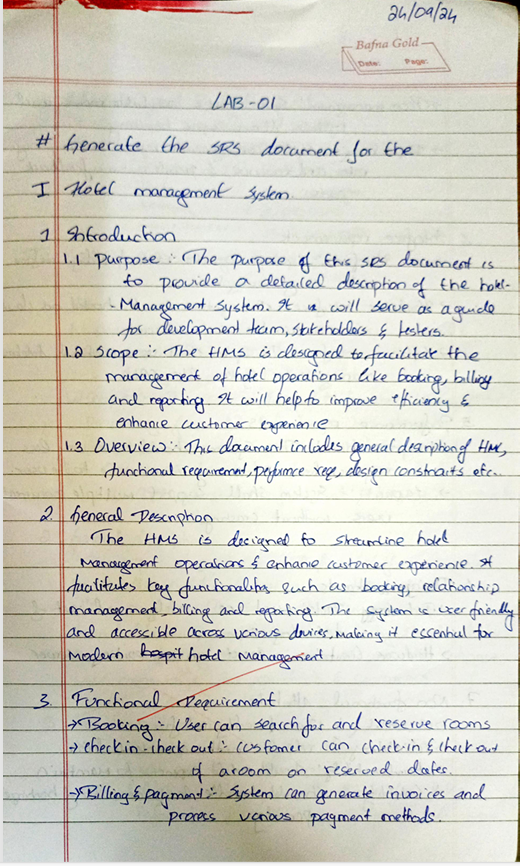 24/09/24
Bafna Gold
Date: Page:
LAB-01
# Generate the SRS document for the
I Hotel management System
1 Introduction
1.1 Purpose :- The purpose of this SRS document is
to provide a detailed description of the hotel-
-Management System. It will serve as a guide
for development team, stakeholders & testers.
1.2 Scope :- The HMS is designed to facilitate the
management of hotel operations like booking, billing
and reporting It will help to improve efficiency &
enhance customer experience
1.3 Overview :- This document includes general description of HMS,
functional requirement, performance req, design constraints etc..
2. General Description
The HMS is designed to streamline hotel
Management operations & enhance customer experience. It
facilitates key functionalities such as booking, relationship
management, billing and reporting. The system is user friendly
and accessible across various devices, making it essential for
modern hospit hotel management
3. Functional Requirement
→ Booking :- User can search for and reserve rooms
→ check in - check out :- customer can check-in & check out
of a room on reserved dates.
→ Billing & payment :- System can generate invoices and
process various payment methods.